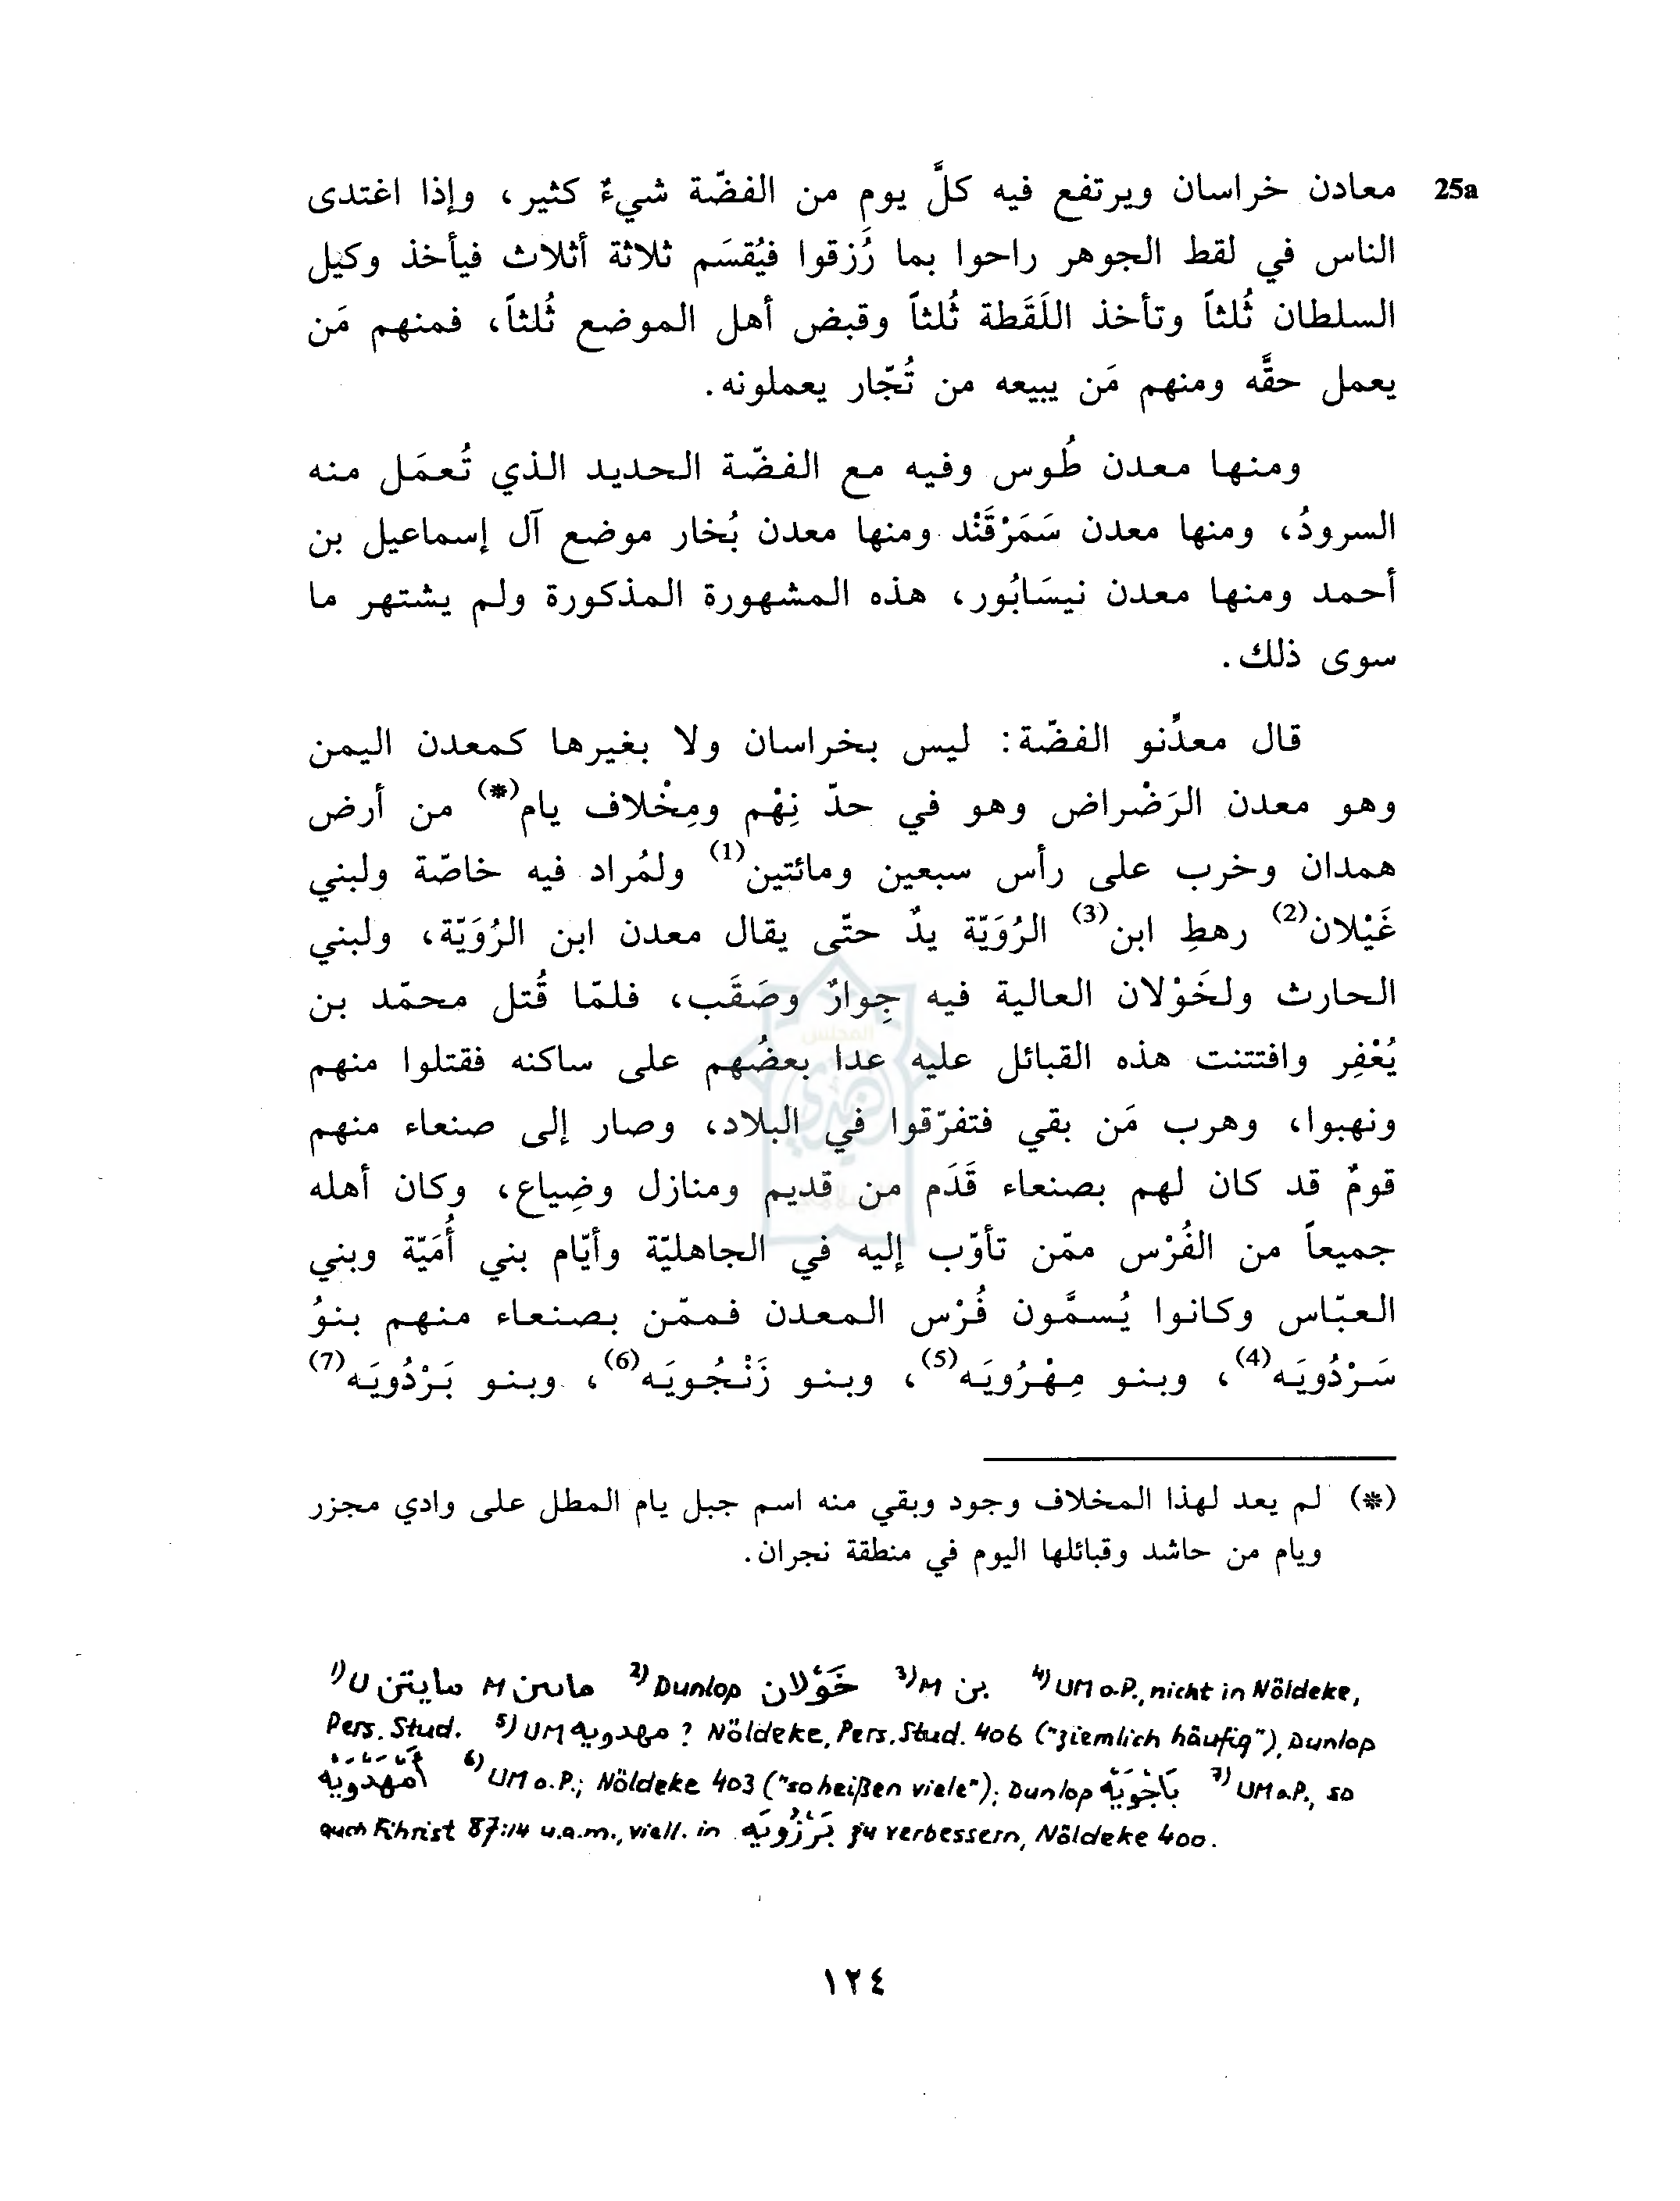 25a معادن خراسان ويرتفع فيه كلَّ يوم من الفضّة شيءٌ كثير، وإذا اغتدى
الناس في لقط الجوهر راحوا بما رُزقوا فيُقسَم ثلاثة أثلاث فيأخذ وكيل
السلطان ثُلثاً وتأخذ اللَقَطة ثُلثاً وقبض أهل الموضع ثُلثاً، فمنهم مَن
يعمل حقَّه ومنهم مَن يبيعه من تُجّار يعملونه.
ومنها معدن طُوس وفيه مع الفضّة الحديد الذي تُعمَل منه
السرودُ، ومنها معدن سَمَرْقَنْد ومنها معدن بُخار موضع آل إسماعيل بن
أحمد ومنها معدن نيسَابُور، هذه المشهورة المذكورة ولم يشتهر ما
سوى ذلك.
قال معدِّنو الفضّة: ليس بخراسان ولا بغيرها كمعدن اليمن
وهو معدن الرَضْراض وهو في حدّ نِهْم ومِخْلاف يام(*) من أرض
همدان وخرب على رأس سبعين ومائتين(1) ولمُراد فيه خاصّة ولبني
غَيْلان(2) رهطِ ابن(3) الرُوَيّة يدٌ حتّى يقال معدن ابن الرُوَيّة، ولبني
الحارث ولخَوْلان العالية فيه جِوارٌ وصَقَب، فلمّا قُتل محمّد بن
يُعْفِر وافتتنت هذه القبائل عليه عدا بعضُهم على ساكنه فقتلوا منهم
ونهبوا، وهرب مَن بقي فتفرّقوا في البلاد، وصار إلى صنعاء منهم
قومٌ قد كان لهم بصنعاء قَدَم من قديم ومنازل وضِياع، وكان أهله
جميعاً من الفُرْس ممّن تأوّب إليه في الجاهليّة وأيّام بني أُمَيّة وبني
العبّاس وكانوا يُسمَّون فُرْس المعدن فممّن بصنعاء منهم بنوُ
سَرْدُويَه(4)، وبنو مِهْرُويَه(5)، وبنو زَنْجُويَه(6)، وبنو بَرْدُويَه(7)
(*) لم يعد لهذا المخلاف وجود وبقي منه اسم جبل يام المطل على وادي مجزر
ويام من حاشد وقبائلها اليوم في منطقة نجران.
1) U مايتن M 2) Dunlop خَوْلان 3) M بن 4) UM o.P., nicht in Nöldeke,
Pers. Stud. 5) UM مهدويه ? Nöldeke, Pers. Stud. 406 ("ziemlich häufig"), Dunlop
6) UM o.P.; Nöldeke 403 ("so heißen viele"); Dunlop بَاجَْويَْه 7) UM o.P., so
auch Fihrist 87:14 u.a.m., viell. in بَرْزُويَه zu verbessern, Nöldeke 400.
١٢٤